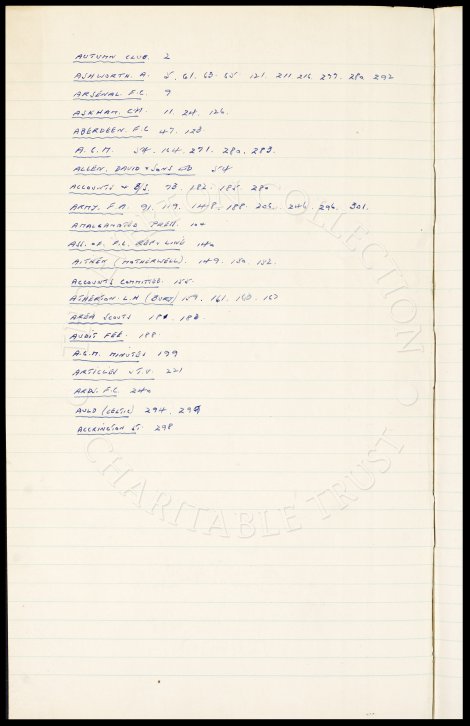 AUTUMN CLUB. 2
ASHWORTH. A. 5. 61. 63. 65. 121. 211. 216. 277. 280. 292
ARSENAL F.C. 9
ASKHAM. 11. 24. 126.
ABERDEEN. F.C. 47. 128.
A.G.M. 54. 164. 271. 280. 283.
ALLEN. DAVID & SONS LTD 54
ACCOUNTS & B/S. 78. 182. 185. 280.
ARMY. F.A. 91. 119. 148. 188. 206. 246. 296. 301.
AMALGAMATED PRESS. 104
ASS. OF. F.L. REFS & LINE 140
AITKEN (MOTHERWELL). 149. 150. 152.
ACCOUNTS COMMITTEE. 155.
ATHERTON. L.H (BURY) 159. 161. 163. 167
AREA SCOUTS 181. 183.
AUDIT FEE. 188.
A.G.M. MINUTES 199
ARTICLES T.V. 221
ARDS. F.C. 240
AULD (CELTIC) 294. 295
ACCRINGTON ST. 298
COLLECTION
CHARITABLE TRUST